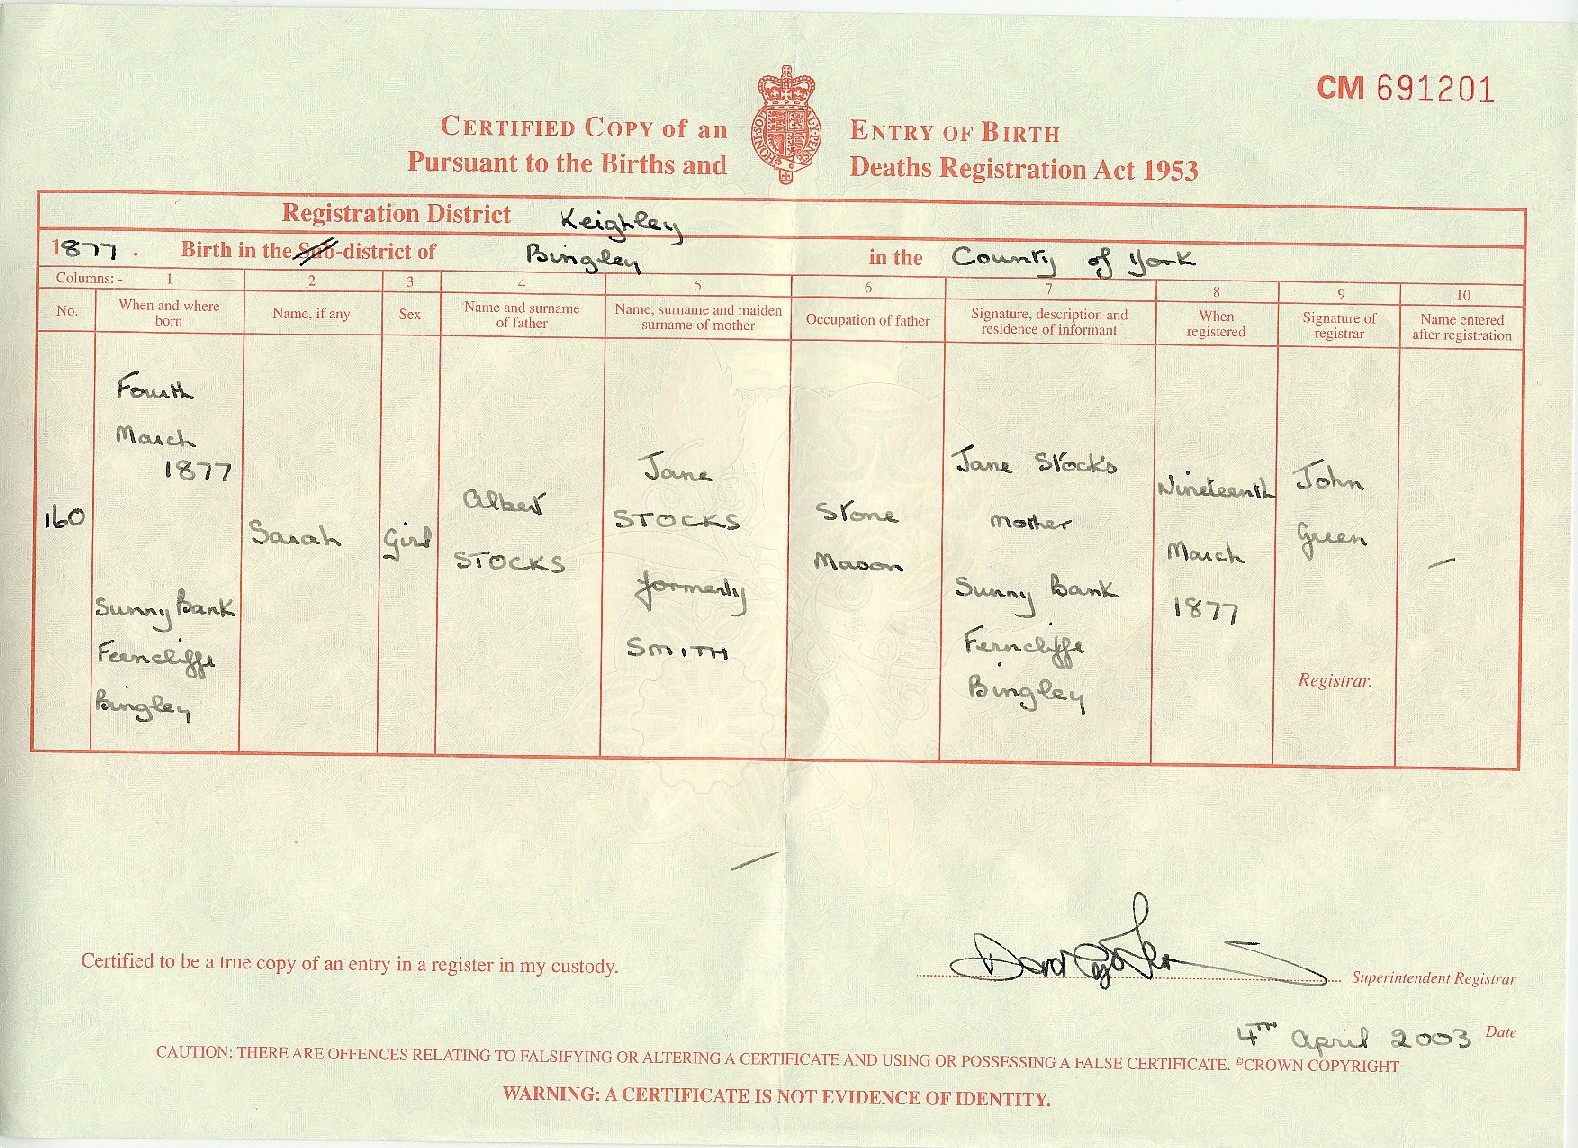 CM 691201
CERTIFIED COPY of an ENTRY OF BIRTH
Pursuant to the Births and Deaths Registration Act 1953
HONI SOIT QUI MAL Y PENSE
Registration District Keighley
1877. Birth in the Sub-district of Bingley in the County of York
Columns:- 1 2 3 4 5 6 7 8 9 10
No.
When and where
born
Name, if any
Sex
Name and surname
of father
Name, surname and maiden
surname of mother
Occupation of father
Signature, description and
residence of informant
When
registered
Signature of
registrar
Name entered
after registration
160
Fourth
March
1877
Sunny Bank
Ferncliffe
Bingley
Sarah
Girl
Albert
STOCKS
Jane
STOCKS
formerly
SMITH
Stone
Mason
Jane Stocks
Mother
Sunny Bank
Ferncliffe
Bingley
Nineteenth
March
1877
John
Green
Registrar.
Certified to be a true copy of an entry in a register in my custody.
Superintendent Registrar
4TH April 2003 Date
CAUTION: THERE ARE OFFENCES RELATING TO FALSIFYING OR ALTERING A CERTIFICATE AND USING OR POSSESSING A FALSE CERTIFICATE. ©CROWN COPYRIGHT
WARNING: A CERTIFICATE IS NOT EVIDENCE OF IDENTITY.